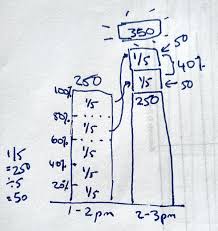 350
1/5
50
40%
1/5
50
250
250
100%
1/5
80%
1/5
60%
1/5
40%
1/5
20%
1/5
1/5
=250
÷5
=50
1-2pm
2-3pm